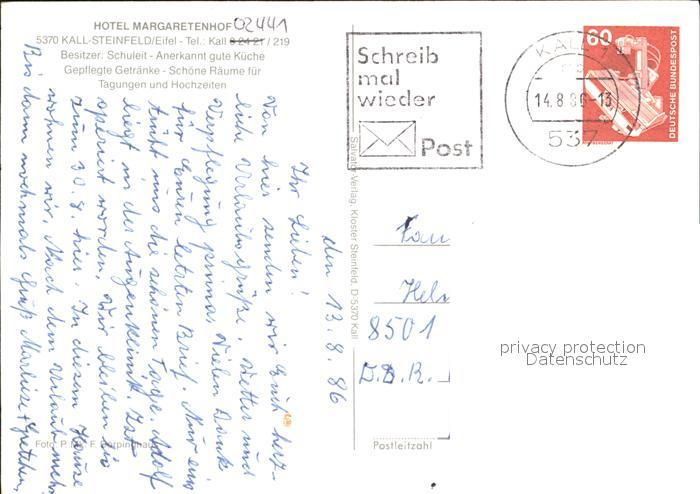 HOTEL MARGARETENHOF 02441
5370 KALL-STEINFELD/Eifel - Tel.: Kall 8 24 21 / 219
Besitzer: Schuleit - Anerkannt gute Küche
Gepflegte Getränke - Schöne Räume für
Tagungen und Hochzeiten
den 13.8.86
Ihr Lieben!
Von hier senden wir Euch herz-
liche Urlaubsgrüße. Wetter und
Verpflegung prima. Vielen Dank
für Euren letzten Brief. Nur ein
trübt uns die schönen Tage. Adolf
liegt in der Augenklinik. Ist
operiert worden. Wir bleiben bis
zum 30.8. hier. In diesem Hause
wohnen wir. Nach dem Urlaub mehr
Bis dann nochmals Gruß Marlise + Gretchen
Foto: P.
Salvator-Verlag, Kloster Steinfeld, D 5370 Kall
Schreib
mal
wieder
Post
KALL
14.8.86-13
537
60
DEUTSCHE BUNDESPOST
Fam
Heln
8501
D.D.R.
Postleitzahl
privacy protection
Datenschutz